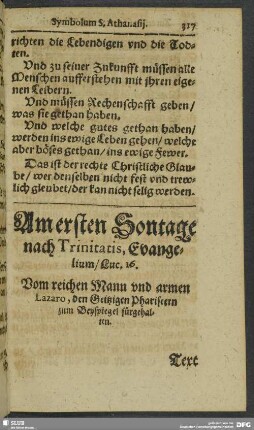 Symbolum S. Athanasij. 317
richten die Lebendigen vnd die Tod-
ten.
Vnd zu seiner Zukunfft müssen alle
Menschen aufferstehen mit jhren eige-
nen Leibern.
Vnd müssen Rechenschafft geben/
was sie gethan haben.
Vnd welche gutes gethan haben/
werden ins ewige Leben gehen/ welche
aber böses gethan/ ins ewige Fewer.
Das ist der rechte Christliche Glau-
be/ wer denselben nicht fest vnd trew-
lich gleubet/ der kan nicht selig werden.
Am ersten Sontage
nach Trinitatis, Evange-
lium/ Luc. 16.
Vom reichen Mann vnd armen
Lazaro, den Geitzigen Phariseern
zum Beyspiegel fürgehal-
ten.
Text
SLUB
DFG